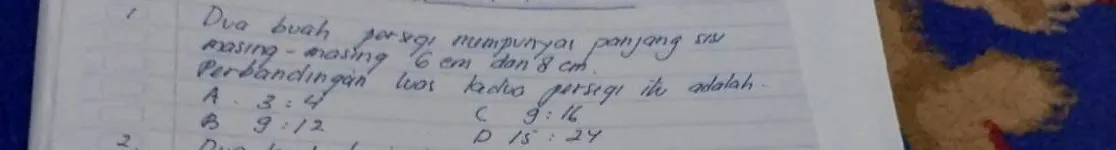 1. Dua buah persegi mempunyai panjang sisi
masing-masing 6 cm dan 8 cm.
Perbandingan luas kedua persegi itu adalah.
A. 3:4 C 9:16
B 9:12 D 15:24
2. Dua